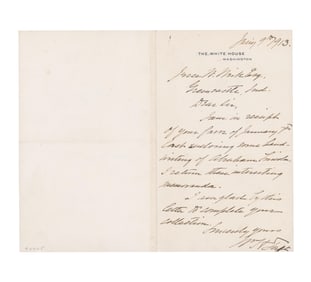 1913.
THE WHITE HOUSE
WASHINGTON
Esq.
Greencastle, Ind.
Dear Sir,
I am in receipt
of your favor of January
last enclosing some hand-
writing of Abraham Lincoln
I return these interesting
memoranda.
I am glad by this
letter to complete your
collection.
Sincerely yours
Wm H Taft